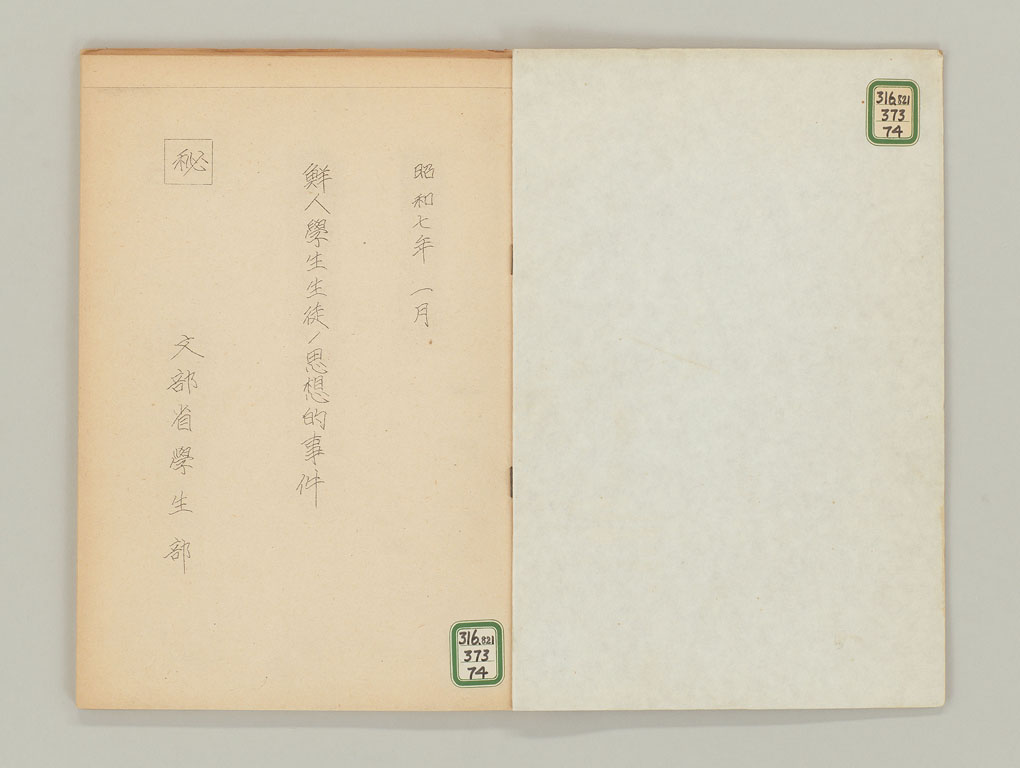 316.821
373
74
昭和七年一月
鮮人學生生徒ノ思想的事件
秘
文部省學生部
316.821
373
74